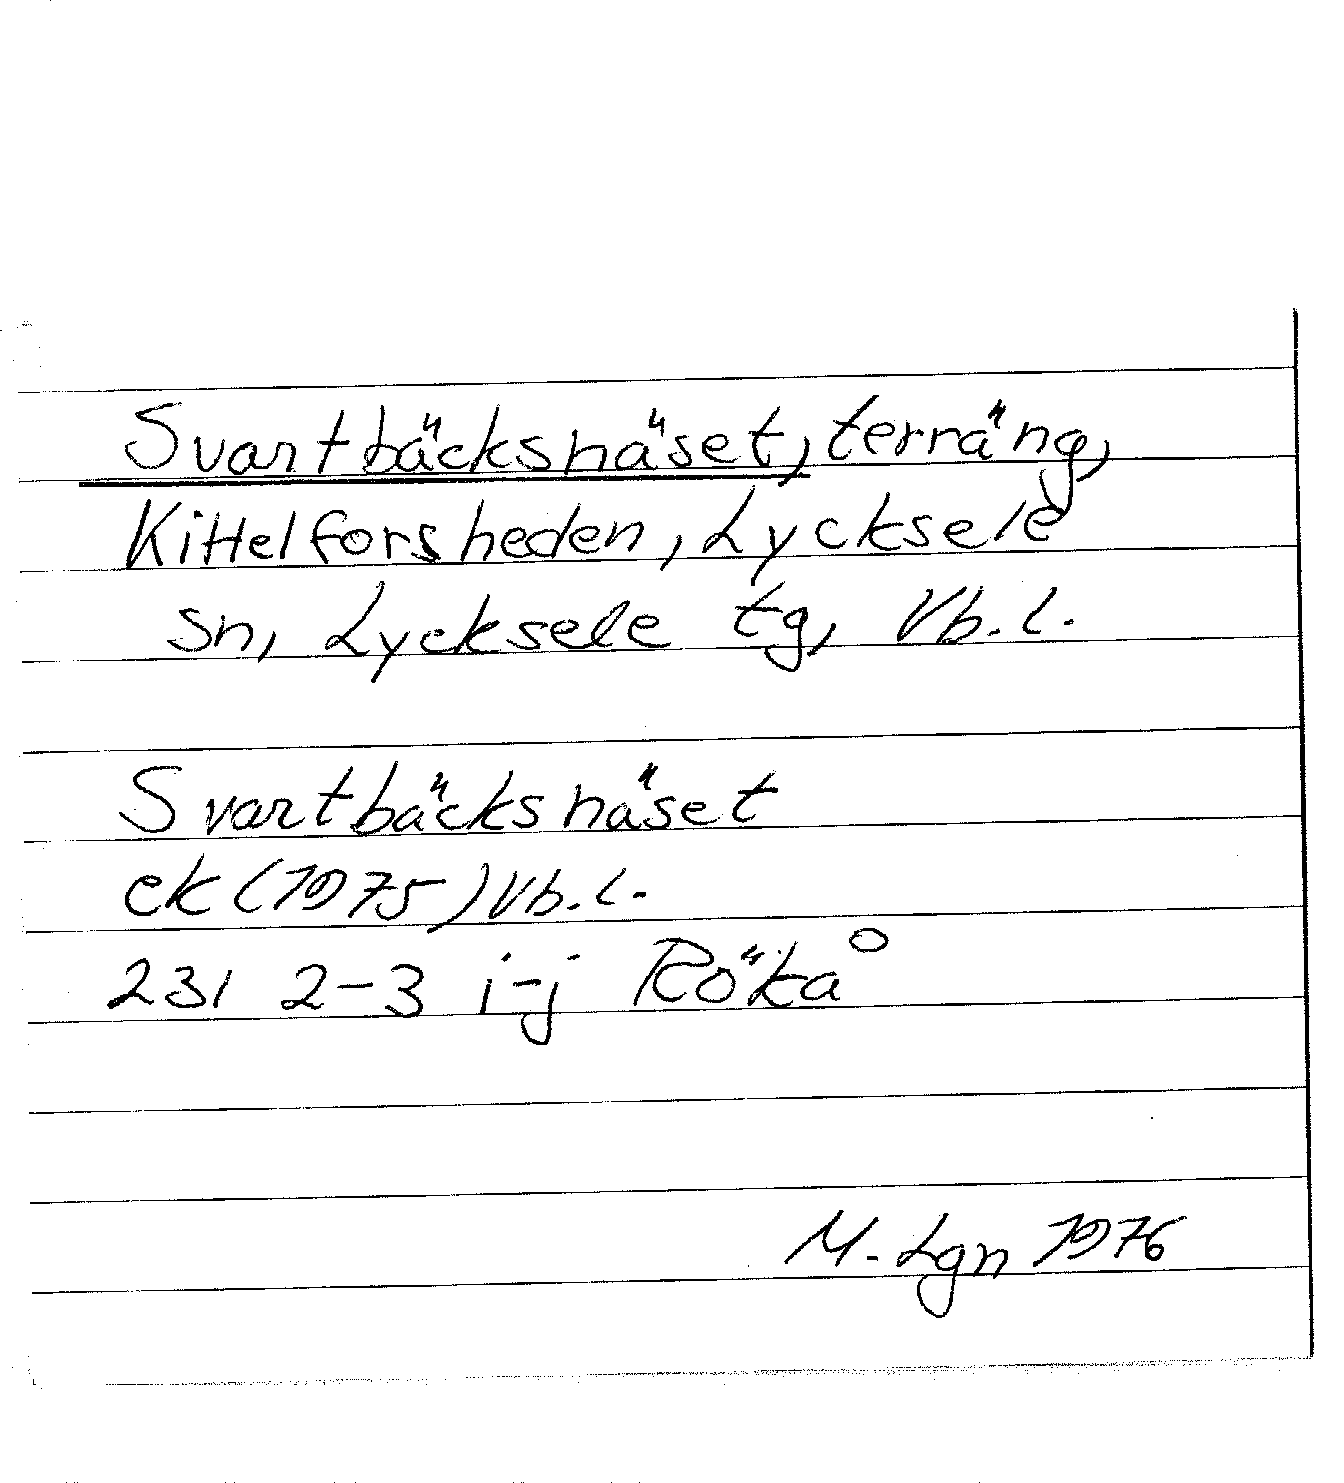 Svartbäcksnäset, terräng,
Kittelforsheden, Lycksele
sn, Lycksele tg, Vb.l.
Svartbäcksnäset
ek (1975) Vb.l.
231 2-3 i-j Rökå
M. Lgn 1976